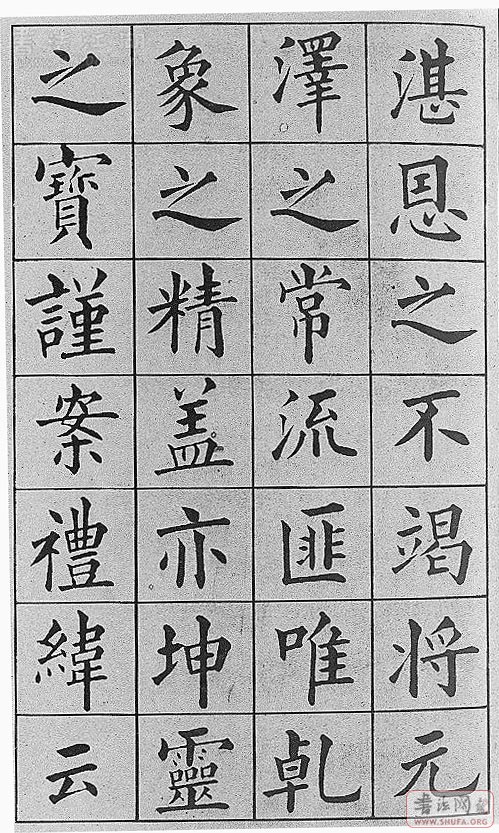 湛恩之不竭将元
澤之常流匪唯乹
象之精盖亦坤靈
之寶謹案禮緯云
書法网
WWW.SHUFA.ORG